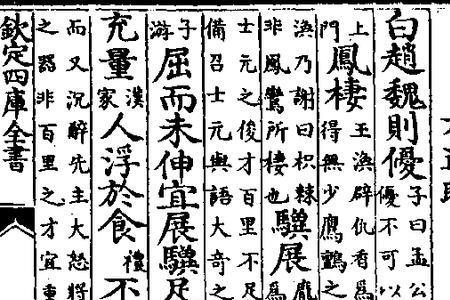 白趙魏則優子曰孟公
優不可以
上
門鳳棲王渙辟仇香爲
得無少鷹鸇之
渙乃謝曰枳棘
非鳳鸞所棲也驥展龐
爲
士元之俊才百里不足
備召士元與語大奇之
子
游屈而未伸宜展驥足
充量漢
家人浮於食禮不
而又沉醉先主大怒將
之器非百里之才宜重
欽定四庫全書